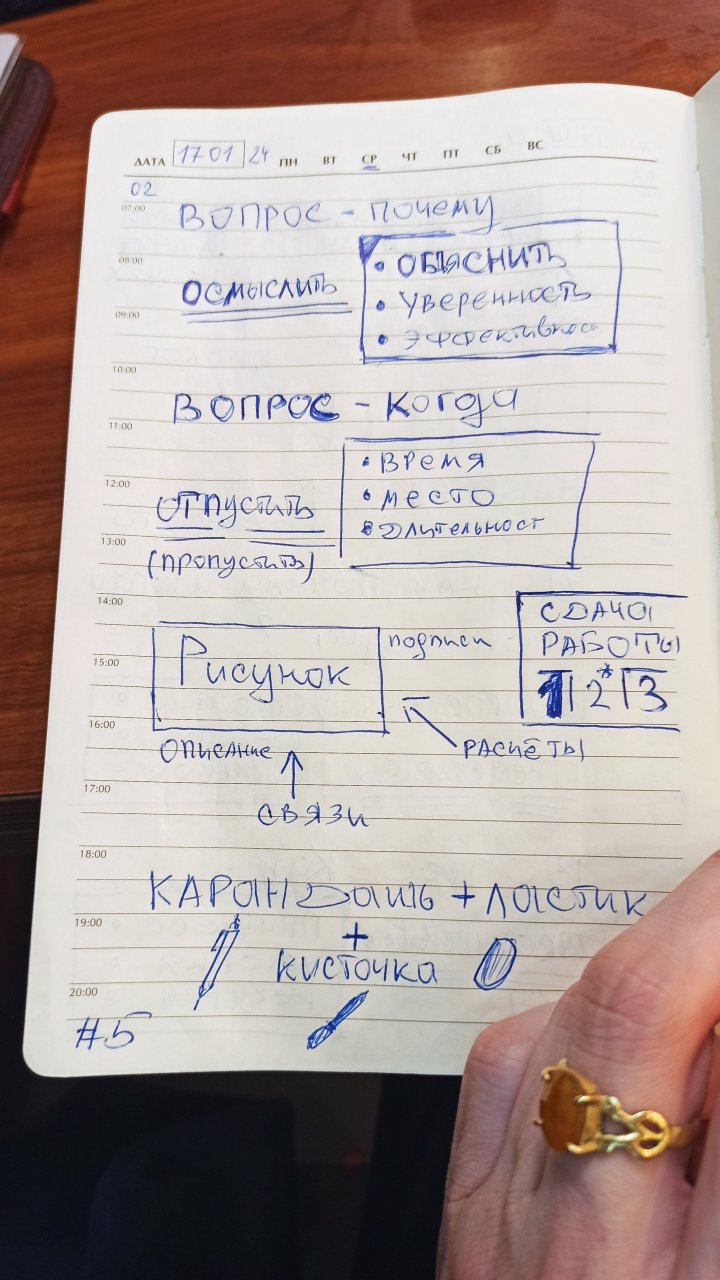 ДАТА 17 01 24 ПН ВТ СР ЧТ ПТ СБ ВС
02
07:00
ВОПРОС - почему
08:00
ОСМЫСЛИТЬ
• ОБЪЯСНИТЬ
• уверенность
• эффективност
09:00
10:00
ВОПРОС - Когда
11:00
• ВРЕМЯ
• место
• длительност
12:00
ОТПУСТИТЬ
13:00
(пропустить)
14:00
СДАЧА
РАБОТЫ
1 | 2* | 3
Рисунок
подписи
15:00
16:00
описание
РАСЧЁТЫ
17:00
связи
18:00
КАРАНДАШЬ + ЛАСТИК
19:00
+
кисточка
20:00
#5